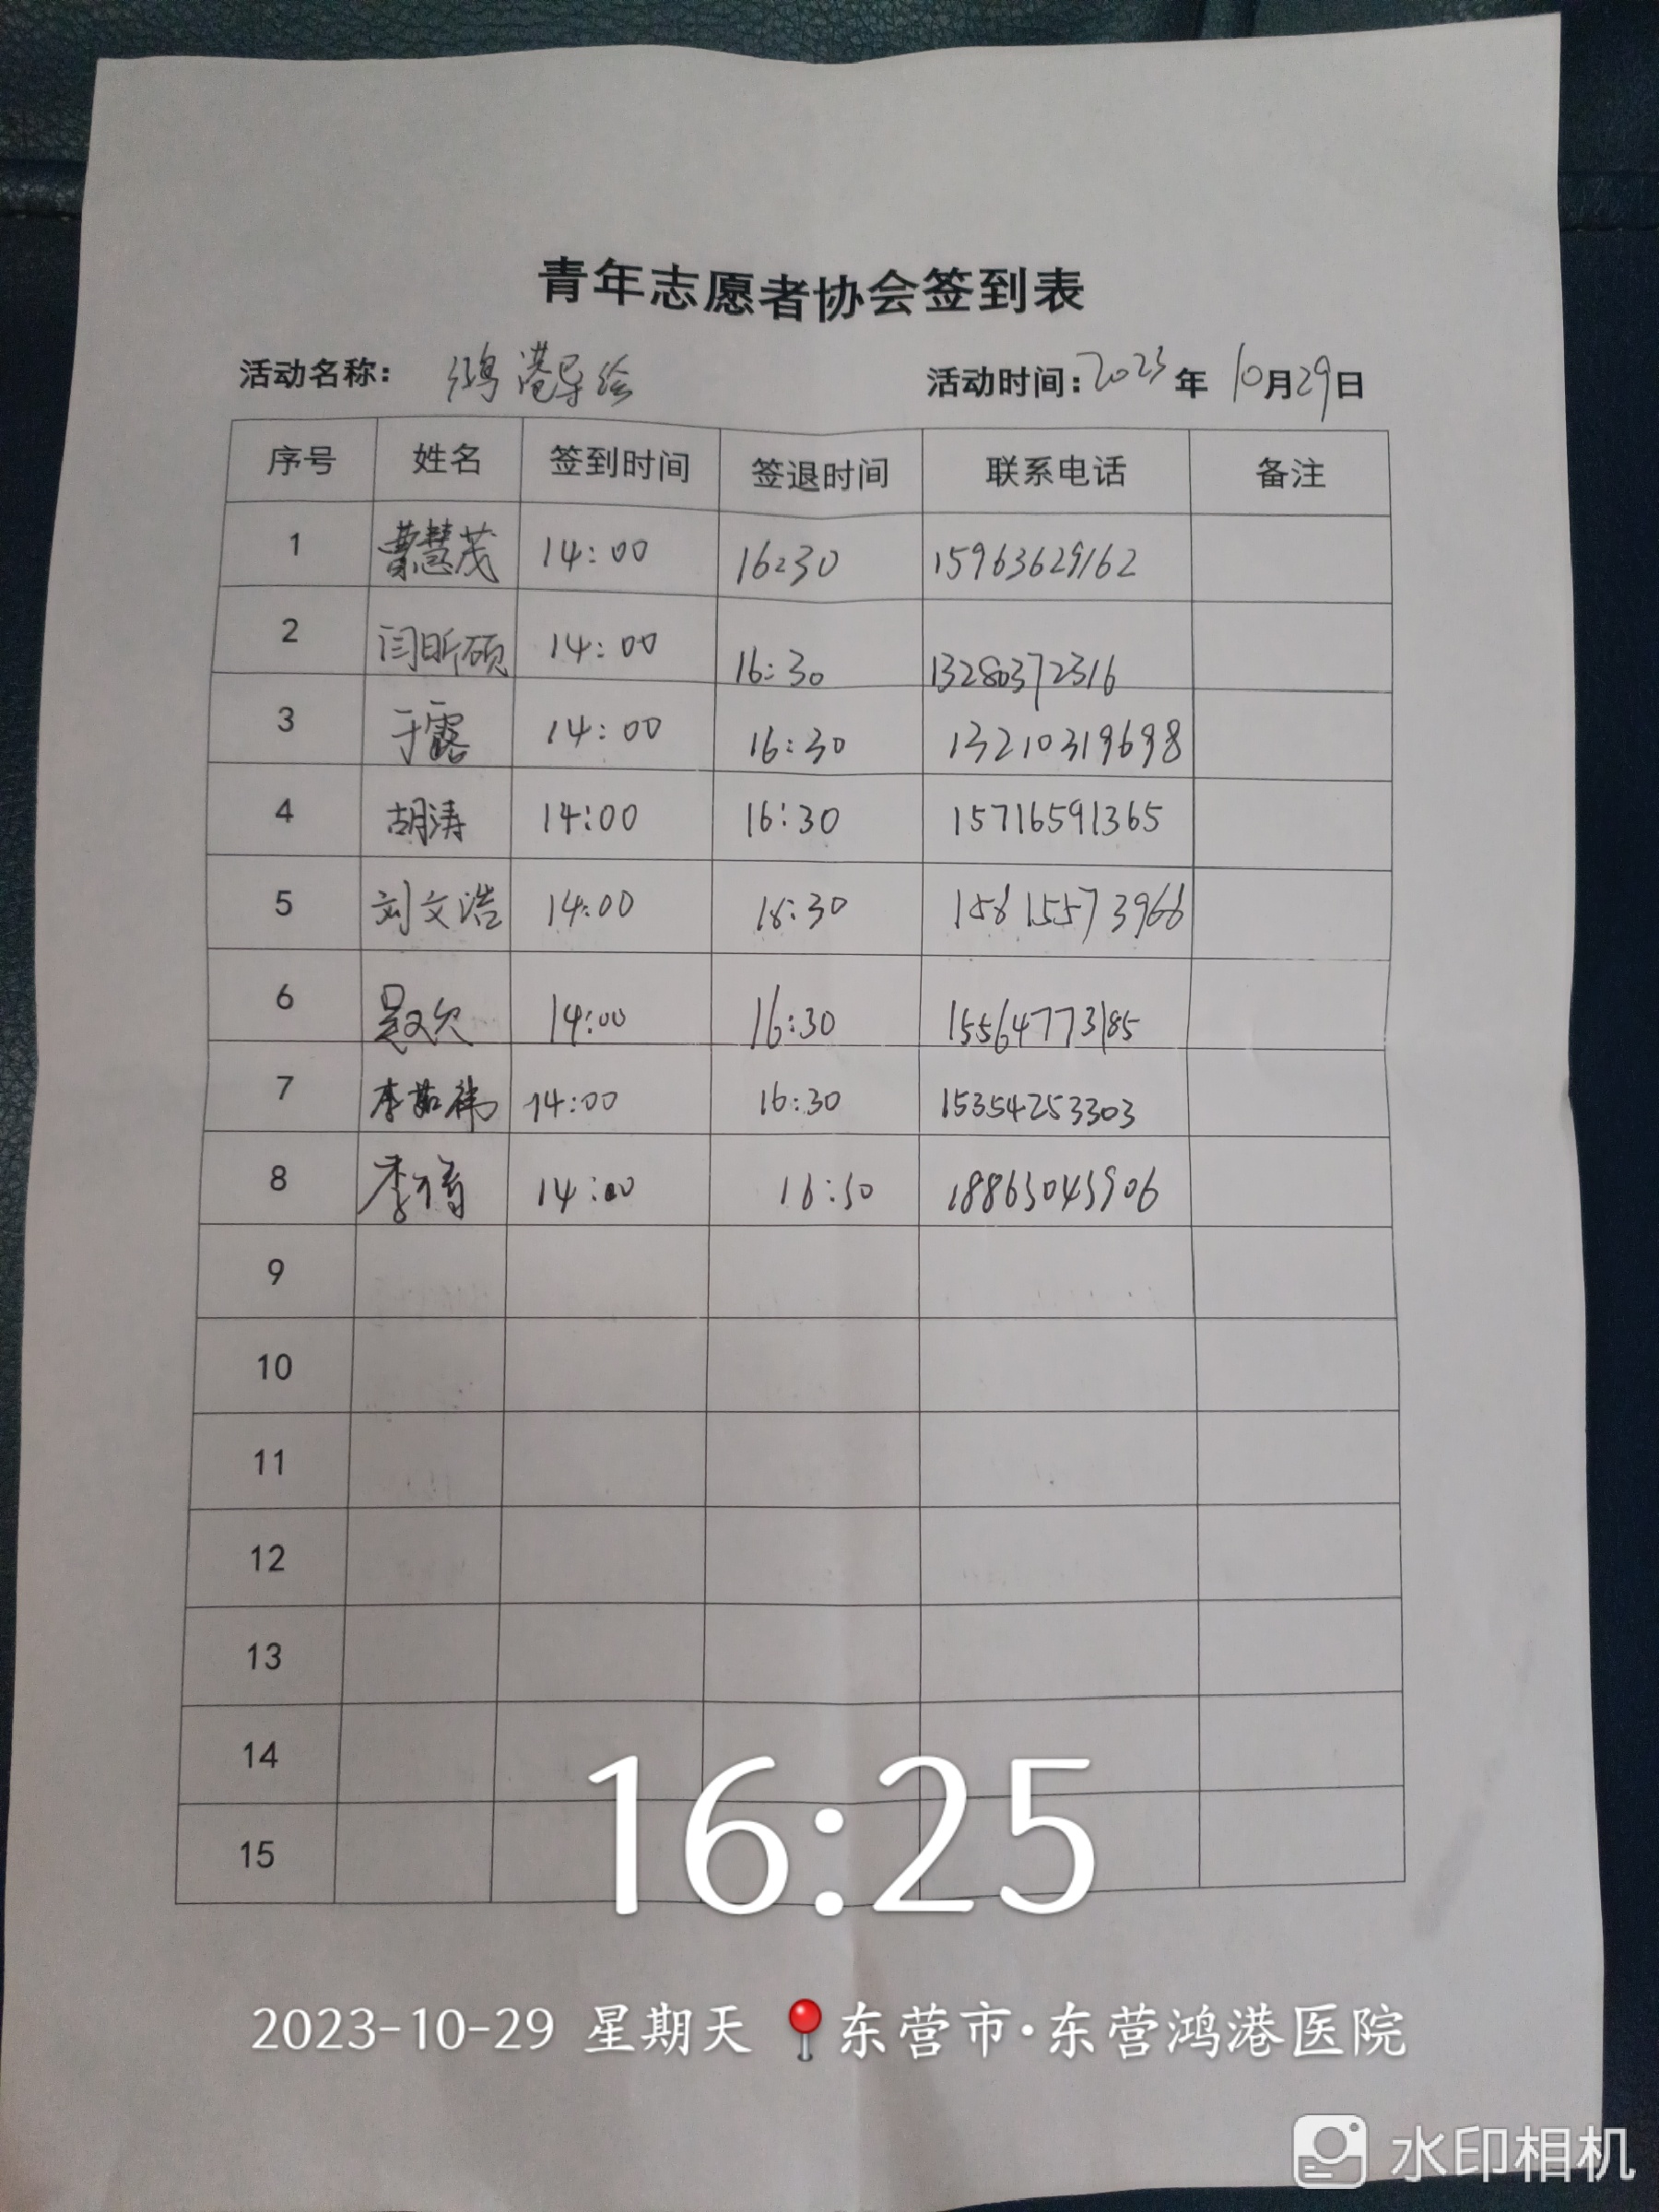 青年志愿者协会签到表
活动名称: 鸿港导绘 活动时间:2023年10月29日
序号 姓名 签到时间 签退时间 联系电话 备注
1 曹慧茂 14:00 16:30 15963629162
2 闫昕硕 14:00 16:30 13280372316
3 于露 14:00 16:30 13210319698
4 胡涛 14:00 16:30 15716591365
5 刘文浩 14:00 16:30 15615573966
6 14:00 16:30 15564773185
7 李茹祎 14:00 16:30 15354253303
8 14:00 16:30 18863043906
9
10
11
12
13
14
15
16:25
2023-10-29 星期天 东营市·东营鸿港医院
水印相机